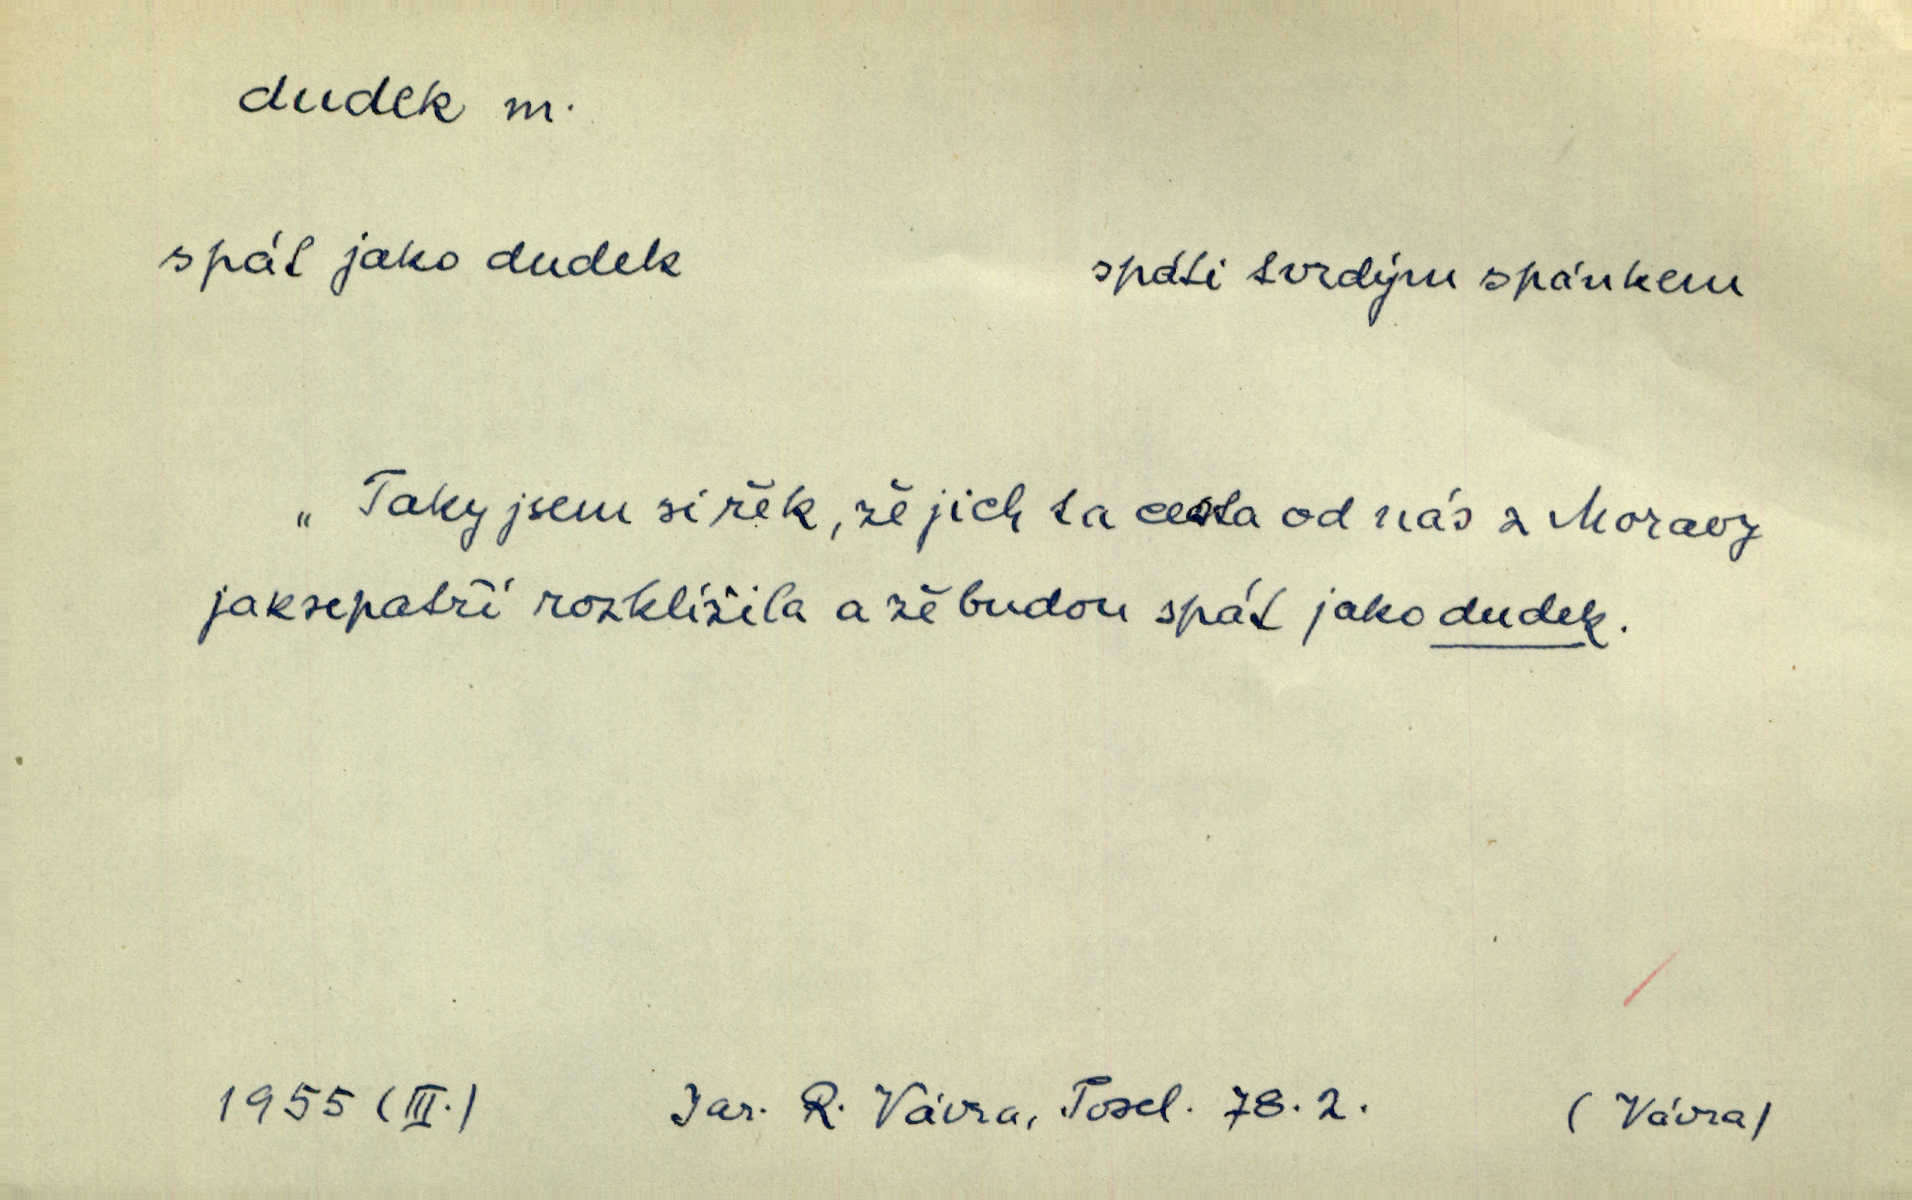 dudek m.
spát jako dudek spáti tvrdým spánkem
„ Taky jsem si řěk, žě jich ta cesta od nás z Moravy
jaksepatří rozklížila a žě budou spát jako dudek.
1955 (III.) Jar. R. Vávra, Posel. 78. 2. (Vávra)